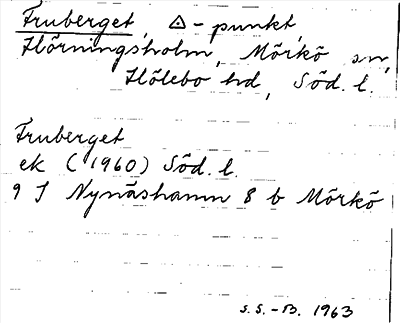 Fruberget, △-punkt,
Hörningsholm, Mörkö sn,
Hölebo hd, Söd. l.
Fruberget
ek (1960) Söd. l.
9 I Nynäshamn 8 b Mörkö
S.S.-B. 1963